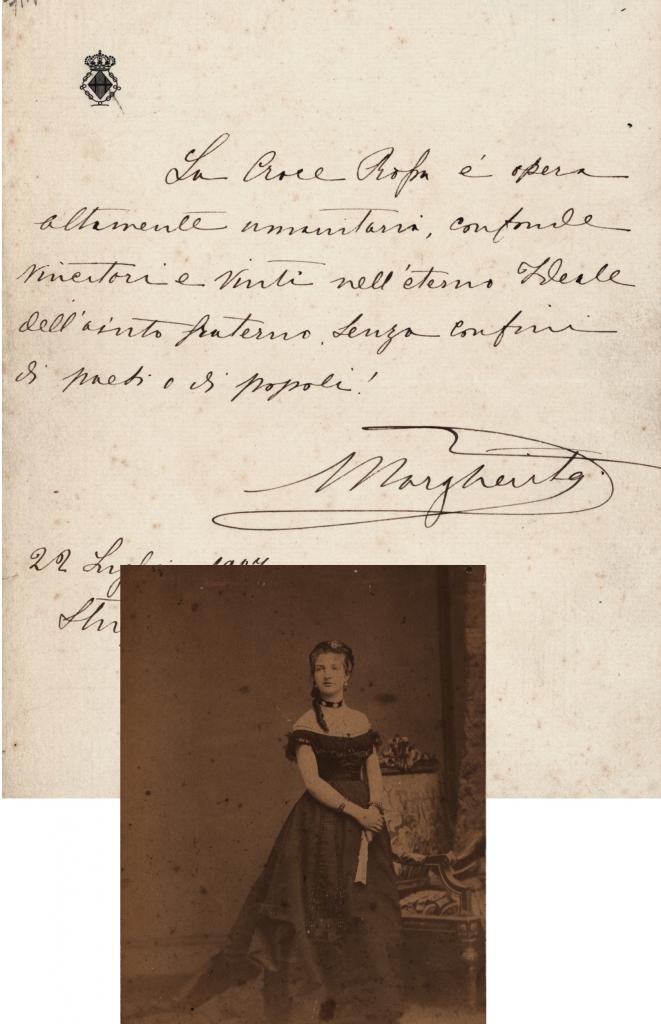 La Croce Rossa é opera
altamente umanitaria, confonde
vincitori e vinti nell'eterno Ideale
dell'aiuto fraterno, senza confini
di paesi o di popoli!
Margherita.
22